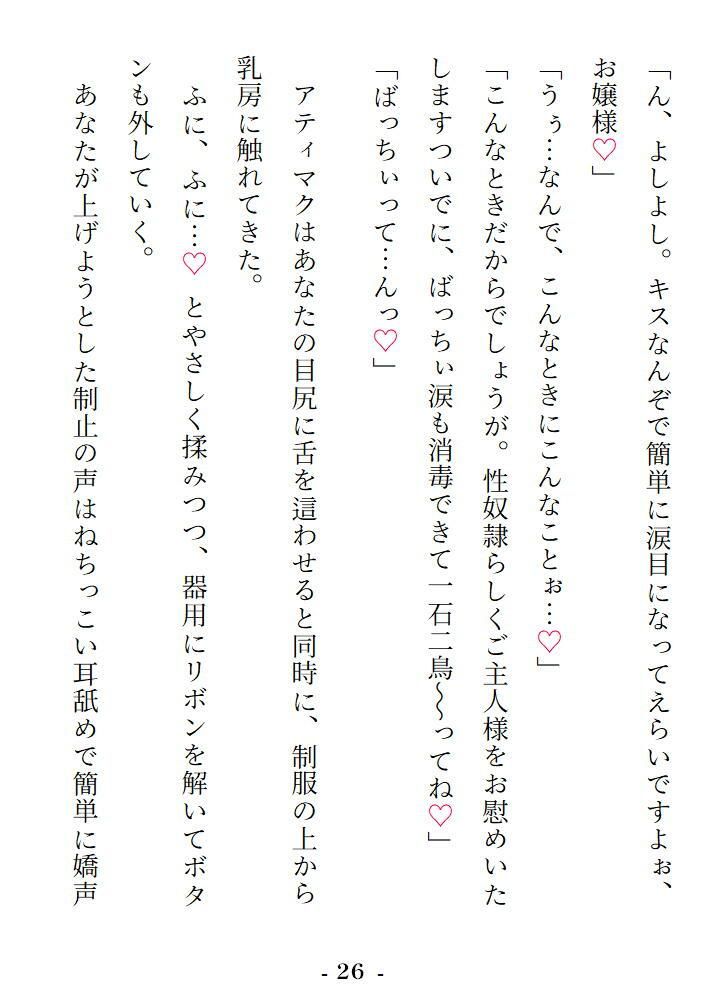 「ん、よしよし。キスなんぞで簡単に涙目になってえらいですよぉ、
お嬢様♡」
「うぅ…なんで、こんなときにこんなことぉ…♡」
「こんなときだからでしょうが。性奴隷らしくご主人様をお慰めいた
しますついでに、ばっちぃ涙も消毒できて一石二鳥〜〜ってね♡」
「ばっちぃって…んっ♡」
アティマクはあなたの目尻に舌を這わせると同時に、制服の上から
乳房に触れてきた。
ふに、ふに…♡ とやさしく揉みつつ、器用にリボンを解いてボタ
ンも外していく。
あなたが上げようとした制止の声はねちっこい耳舐めで簡単に嬌声
- 26 -